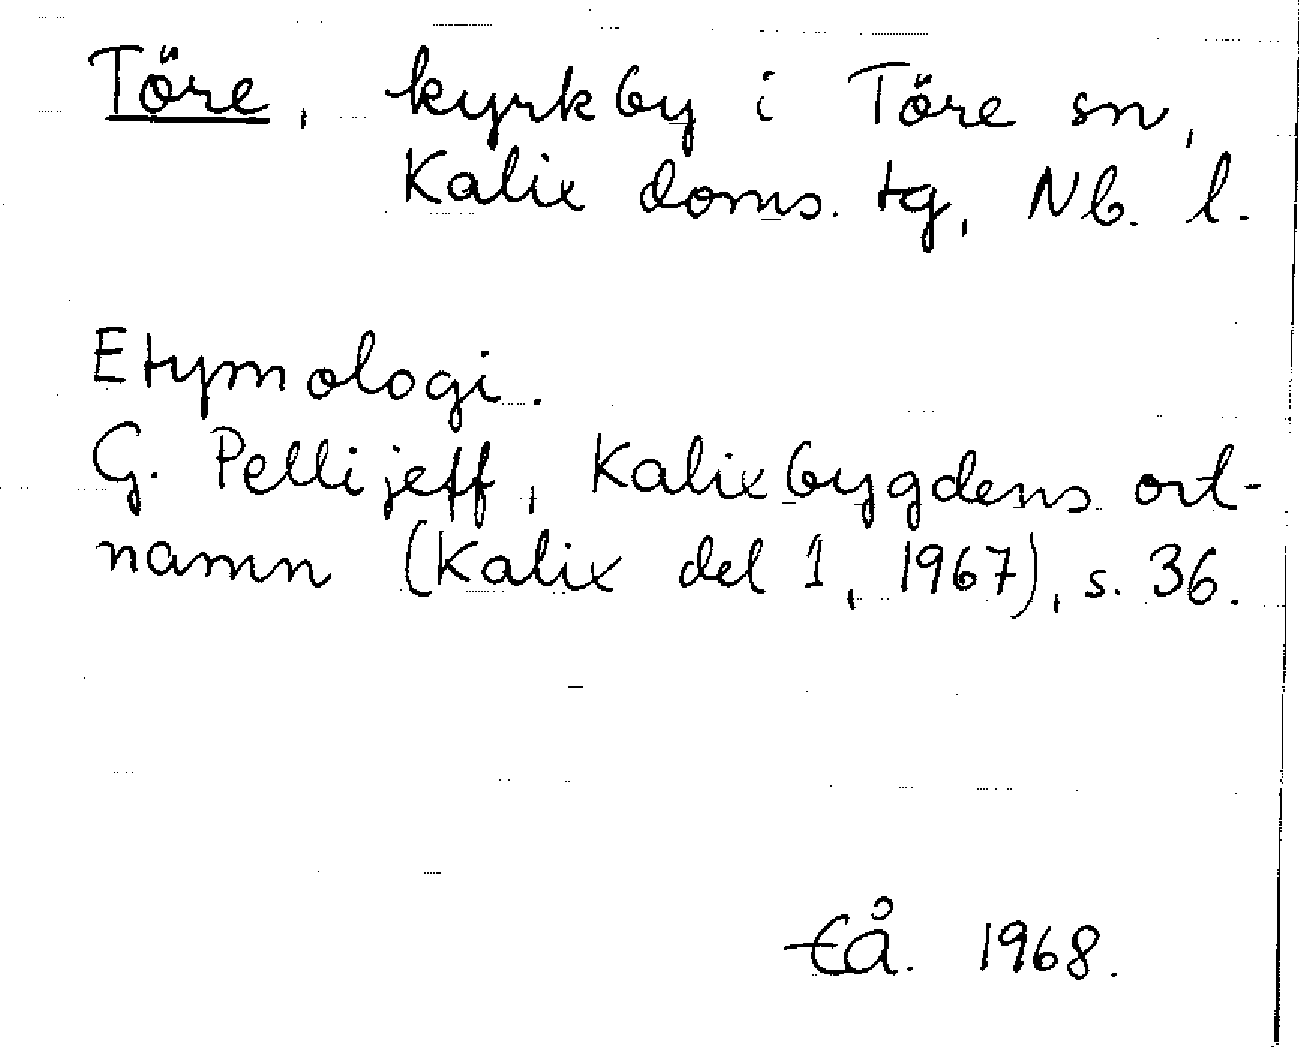 Töre, kyrkby i Töre sn,
Kalix doms. tg, Nb. l.
Etymologi.
G. Pellijeff, Kalixbygdens ort-
namn (Kalix del 1, 1967), s. 36.
EÅ. 1968.